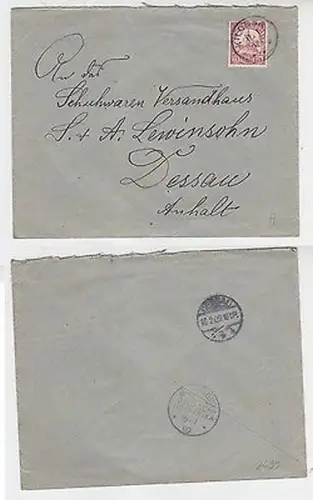 An das
Schuhwaren Versandhaus
S. & A. Lewinsohn
Dessau
Anhalt